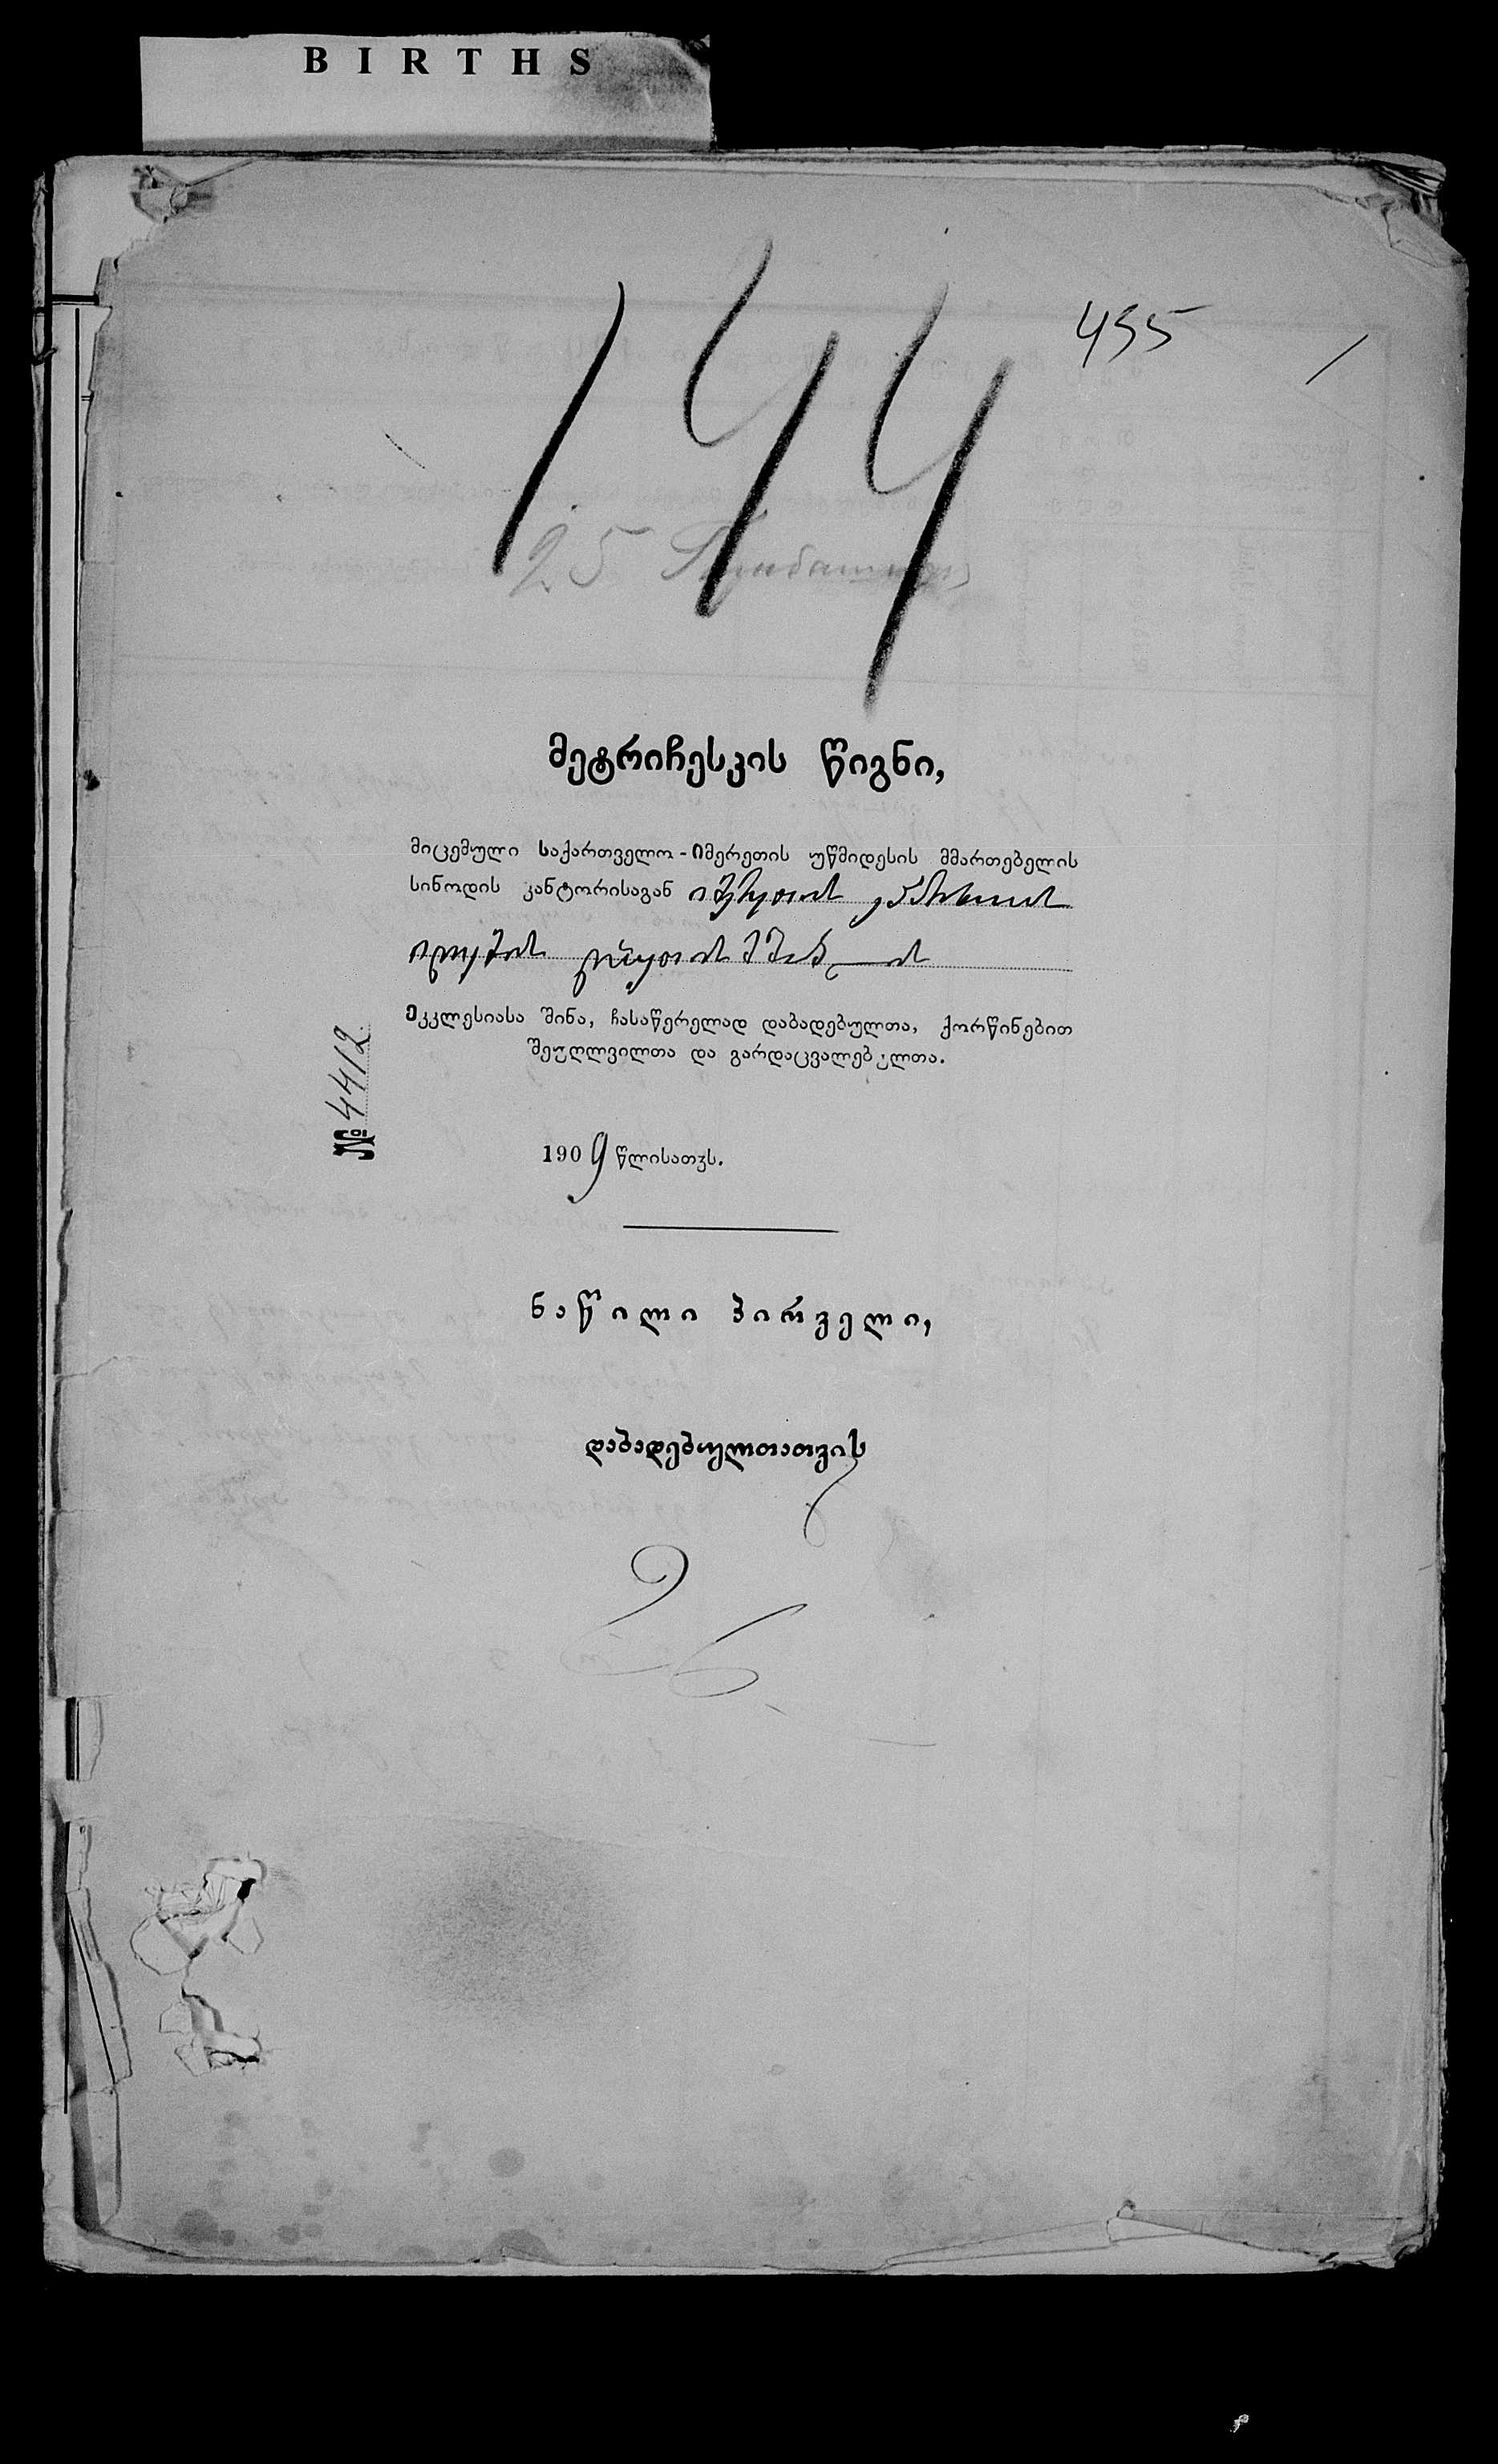 BIRTHS
144
455
25
მეტრიჩესკის წიგნი,
მიცემული საქართველო-იმერეთის უწმიდესის მმართებელის
სინოდის კანტორისაგან იმერეთის
ღვთისმშობლის
ეკკლესიასა შინა, ჩასაწერელად დაბადებულთა, ქორწინებით
შეუღლვილთა და გარდაცვალებულთა.
№ 4412
1909 წლისათჳს.
ნაწილი პირველი,
დაბადებულთათვის
26